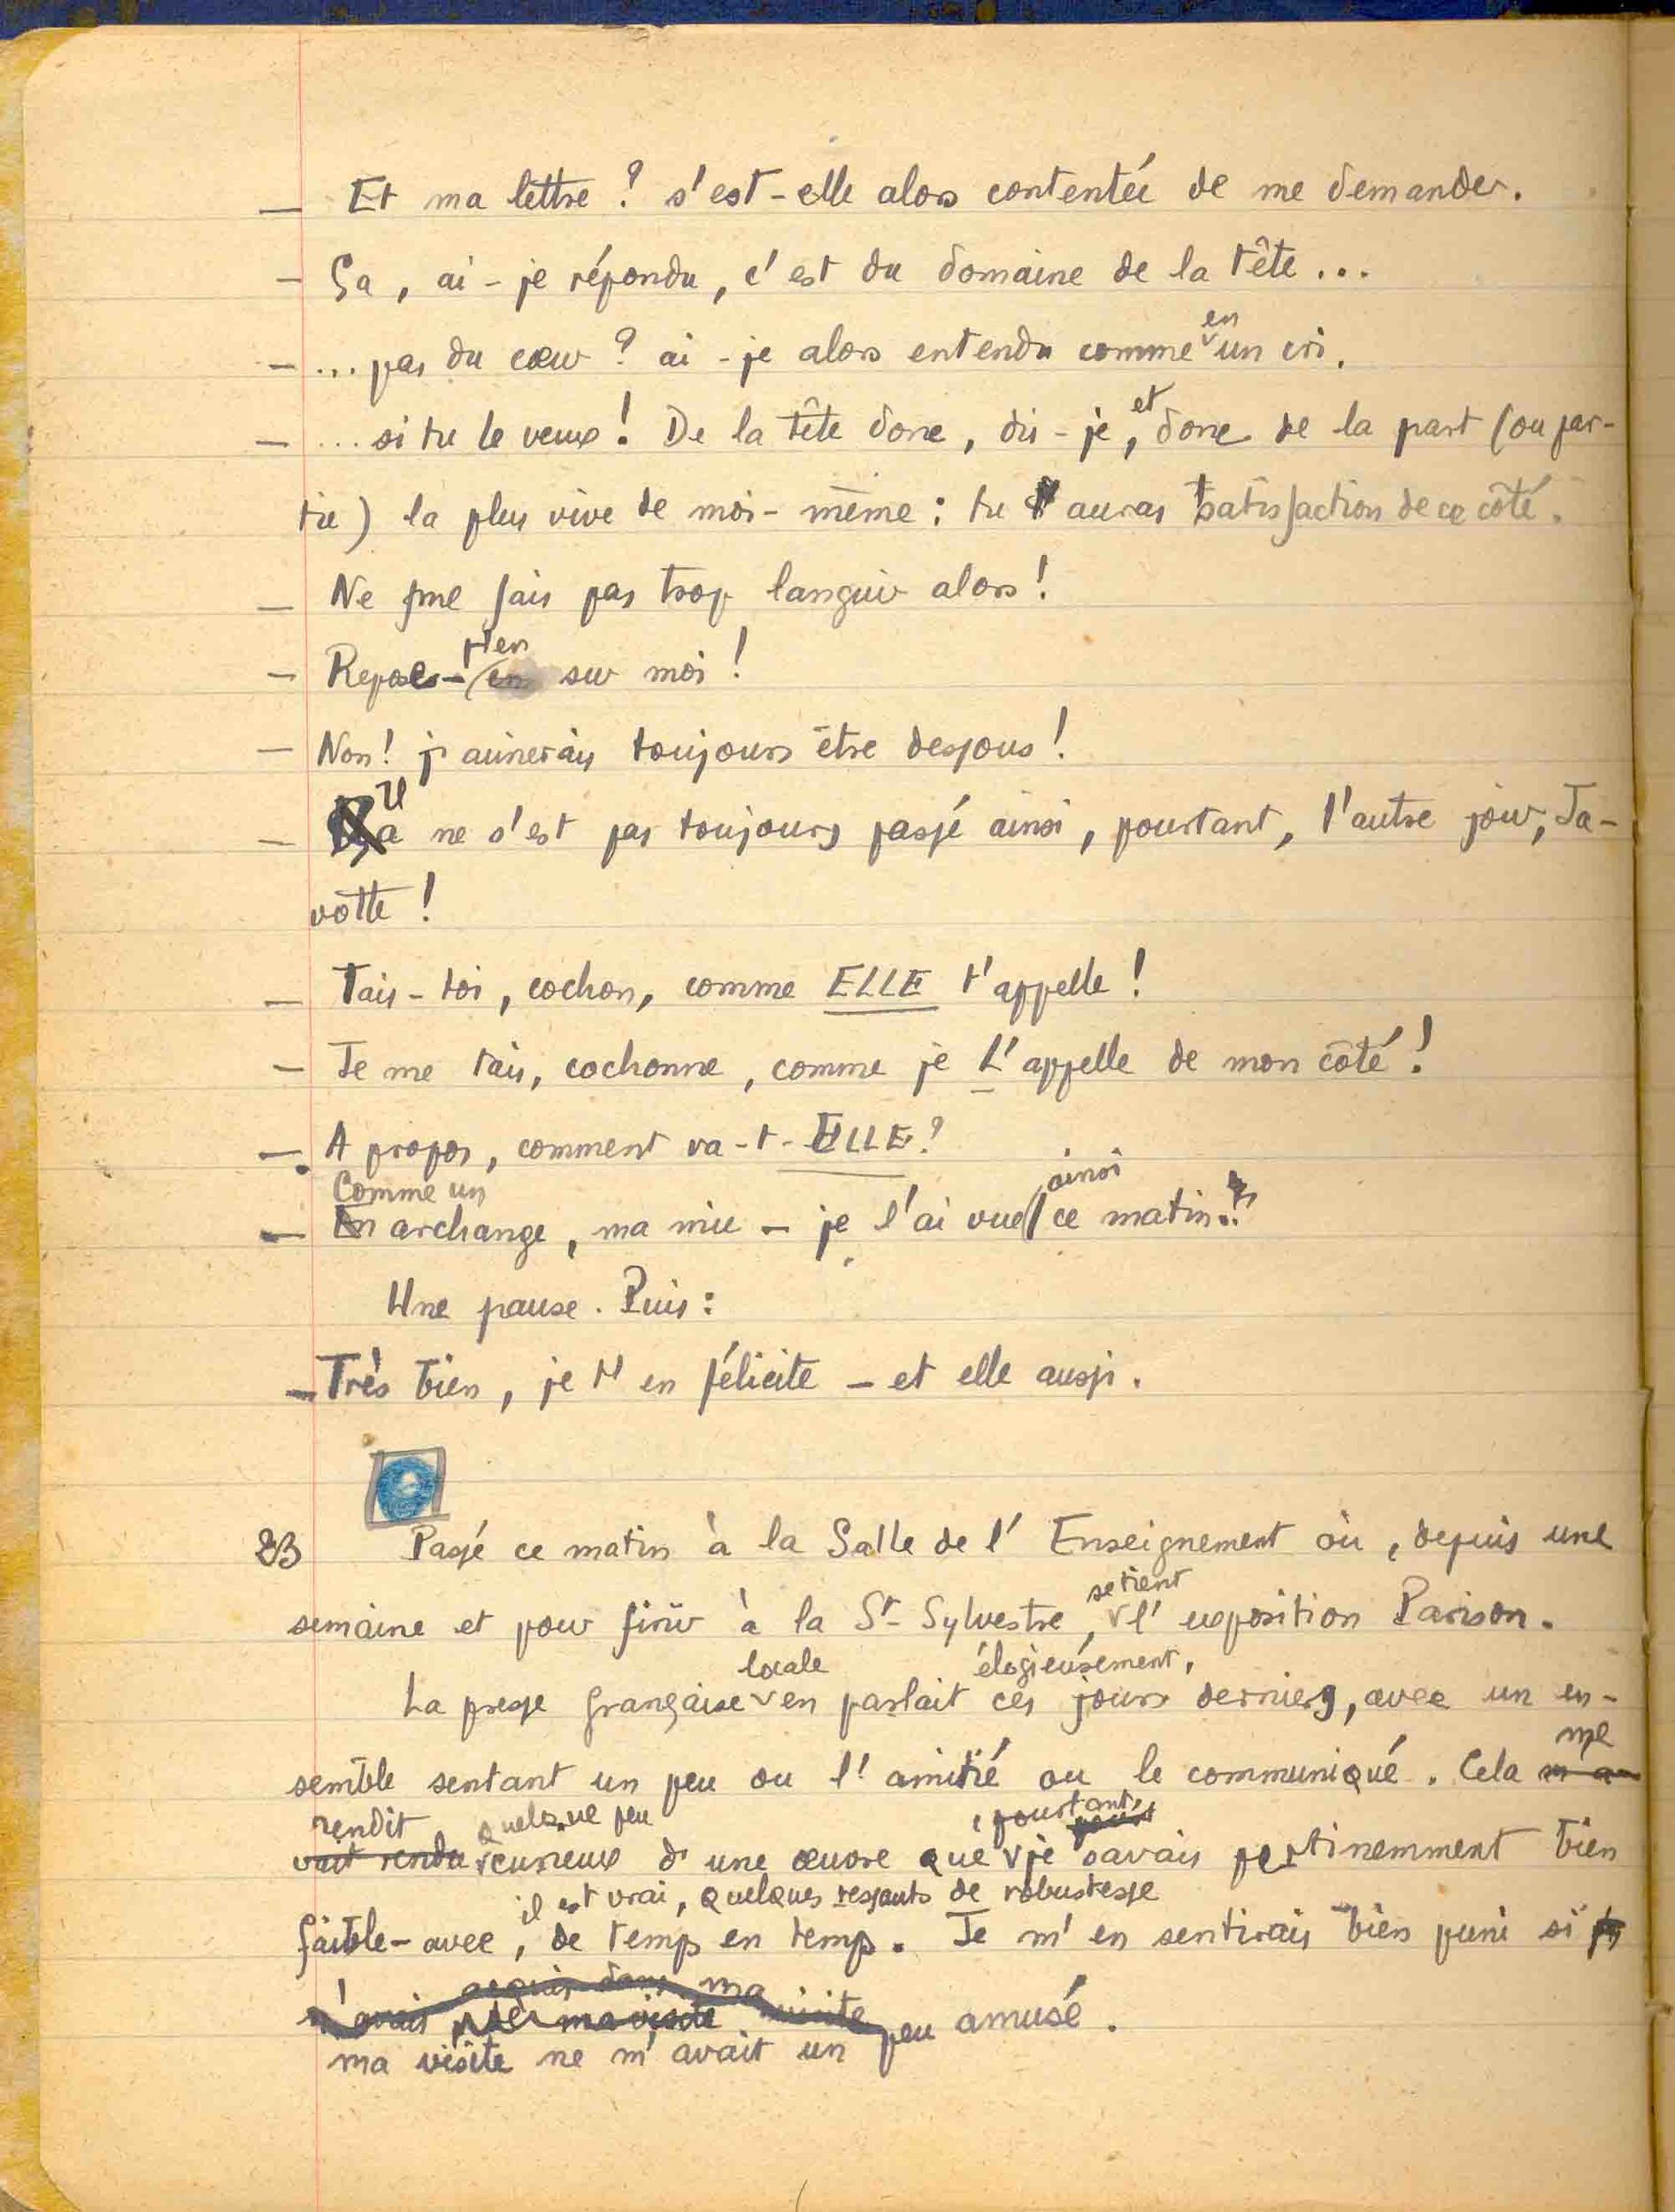 — Et ma lettre ? s'est-elle alors contentée de me demander.
— Ça, ai-je répondu, c'est du domaine de la tête...
— ... pas du cœur ? ai-je alors entendu comme en un cri.
— ... si tu le veux ! De la tête donc, dis-je, et donc de la part (ou par-
tie) la plus vive de moi-même : tu auras satisfaction de ce côté.
— Ne me fais pas trop languir alors !
— Repose-t'en sur moi !
— Non ! j'aimerais toujours être dessous !
— Ça ne s'est pas toujours passé ainsi, pourtant, l'autre jour, Ja-
votte !
— Tais-toi, cochon, comme ELLE t'appelle !
— Je me tais, cochonne, comme je L'appelle de mon côté !
— A propos, comment va-t-ELLE ?
— Comme un archange, ma mie — je l'ai vue ainsi ce matin..
Une pause. Puis :
— Très bien, je t'en félicite — et elle aussi.
23 Passé ce matin à la Salle de l'Enseignement où, depuis une
semaine et pour finir à la St-Sylvestre, se tient l'exposition Parison.
La presse grançaise locale en parlait ces jours derniers, élogieusement, avec un en-
semble sentant un peu ou l'amitié ou le communiqué. Cela me
rendit quelque peu curieux d'une œuvre que, pourtant, je savais pertinemment bien
faible — avec, il est vrai, quelques ressauts de robustesse de temps en temps. Je m'en sentirais bien puni si
ma visite ne m'avait un peu amusé.